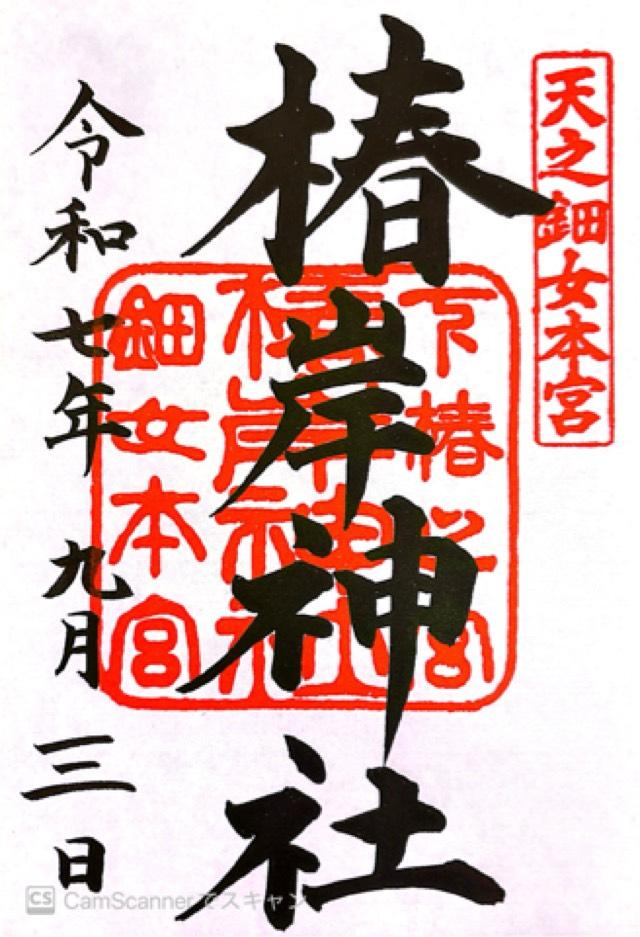 天之鈿女本宮
椿岸神社
鈿女本宮
令和七年 九月 三日
CS CamScannerでスキャン